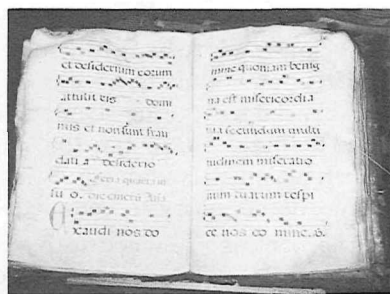 et desiderium eorum
attulit eis domi
nus et non sunt frau
dati a desiderio
suo.
Exaudi nos do
mine quoniam benig
na est misericordia
tua secundum multi
tudinem miseratio
num tuarum respi
ce nos domine. &.